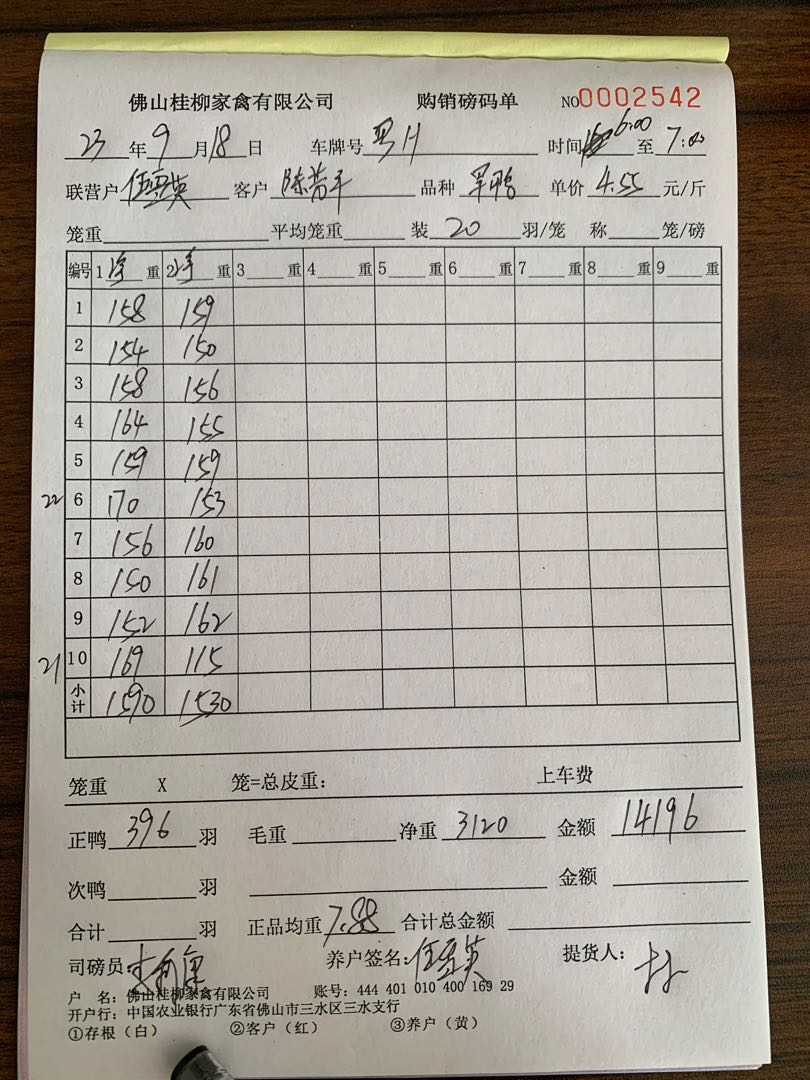 佛山桂柳家禽有限公司 购销磅码单 NO0002542
23年9月18日 车牌号粤H 时间6:00至7:00
联营户伍 英 客户陈 平 品种 鸭 单价4.55元/斤
笼重 平均笼重 装20羽/笼 称 笼/磅
编号 1净重 2净重 3 重 4 重 5 重 6 重 7 重 8 重 9 重
1 158 159
2 154 150
3 158 156
4 164 155
5 159 159
22 6 170 153
7 156 160
8 150 161
9 152 162
21 10 169 115
小计 1590 1530
笼重 X 笼=总皮重： 上车费
正鸭396羽 毛重 净重3120 金额14196
次鸭 羽 金额
合计 羽 正品均重7.88 合计总金额
司磅员： 养户签名：伍 英 提货人：
户 名：佛山桂柳家禽有限公司 账号：444 401 010 400 169 29
开户行：中国农业银行广东省佛山市三水区三水支行
①存根（白） ②客户（红） ③养户（黄）